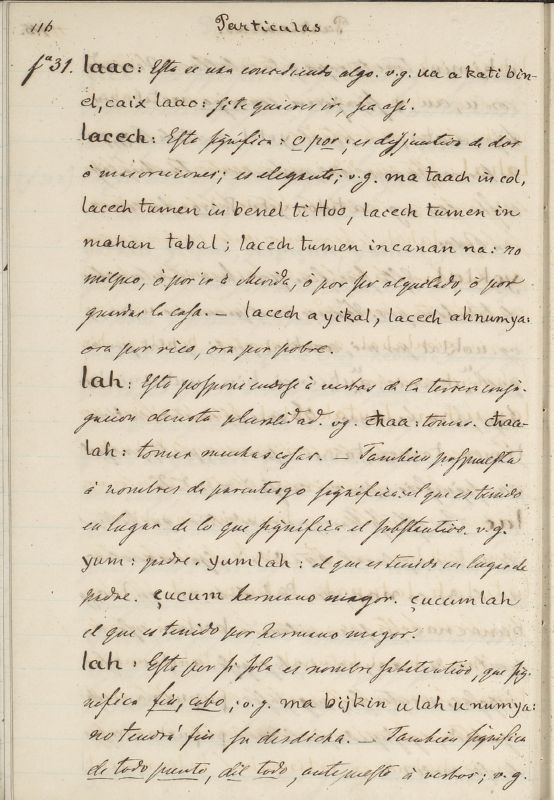 116 Particulas
fª 31. laac: Esta es una concediendo algo. v.g. ua a kati bin-
el, caix laac: si te quieres ir, sea asi.
lacech: Esta significa: o por; es disjuntiva de dos
ò mas oraciones; es elegante; v.g. ma taach in col,
lacech tumen in benel ti Hoo, lacech tumen in
mahan tabal; lacech tumen incanan na: no
milpeo, ò por ir à Merida, ò por ser alquilado, ò por
guardar la casa. — lacech ayikal, lacech ahnumya:
ora por rico, ora por pobre.
lah: Esta posponiendose à verbos de la tercera conju-
gacion denota pluralidad. vg. chaa: tomar. chaa-
lah: tomar muchas cosas. — Tambien pospuesta
à nombres de parentesgo significa: el que es tenido
en lugar de lo que significa el substantivo. v.g.
yum: padre. yumlah: el que es tenido en lugar de
padre. çucum hermano mayor. çucumlah
el que es tenido por hermano mayor.
lah: Esta por si sola es nombre sabstentivo, que sig-
nifica fin, cabo; v.g. ma bijkin u lah u numya:
no tendrá fin su desdicha. — Tambien significa
de todo punto, del todo, antepuesto à verbos; v.g.